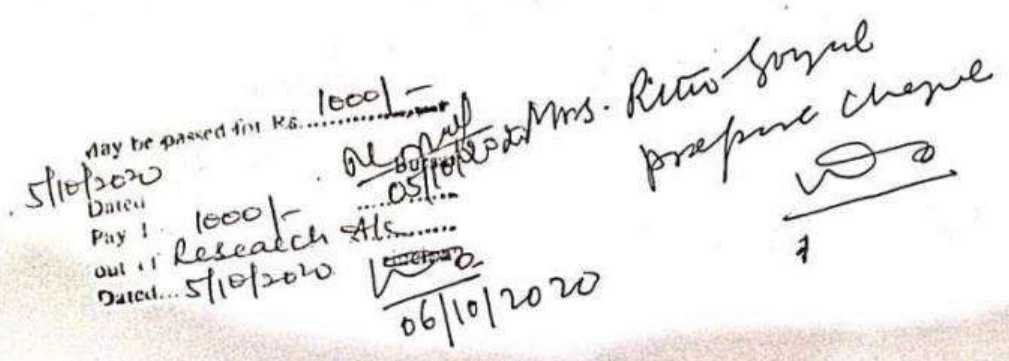 May be passed for Rs. 1000/-
5/10/2020
Dated
Bursar
05/10/2020
Pay 1000/-
out of Research A/c
Dated... 5/10/2020
Principal
06/10/2020
Mrs. Ritu Goyal
prepare cheque